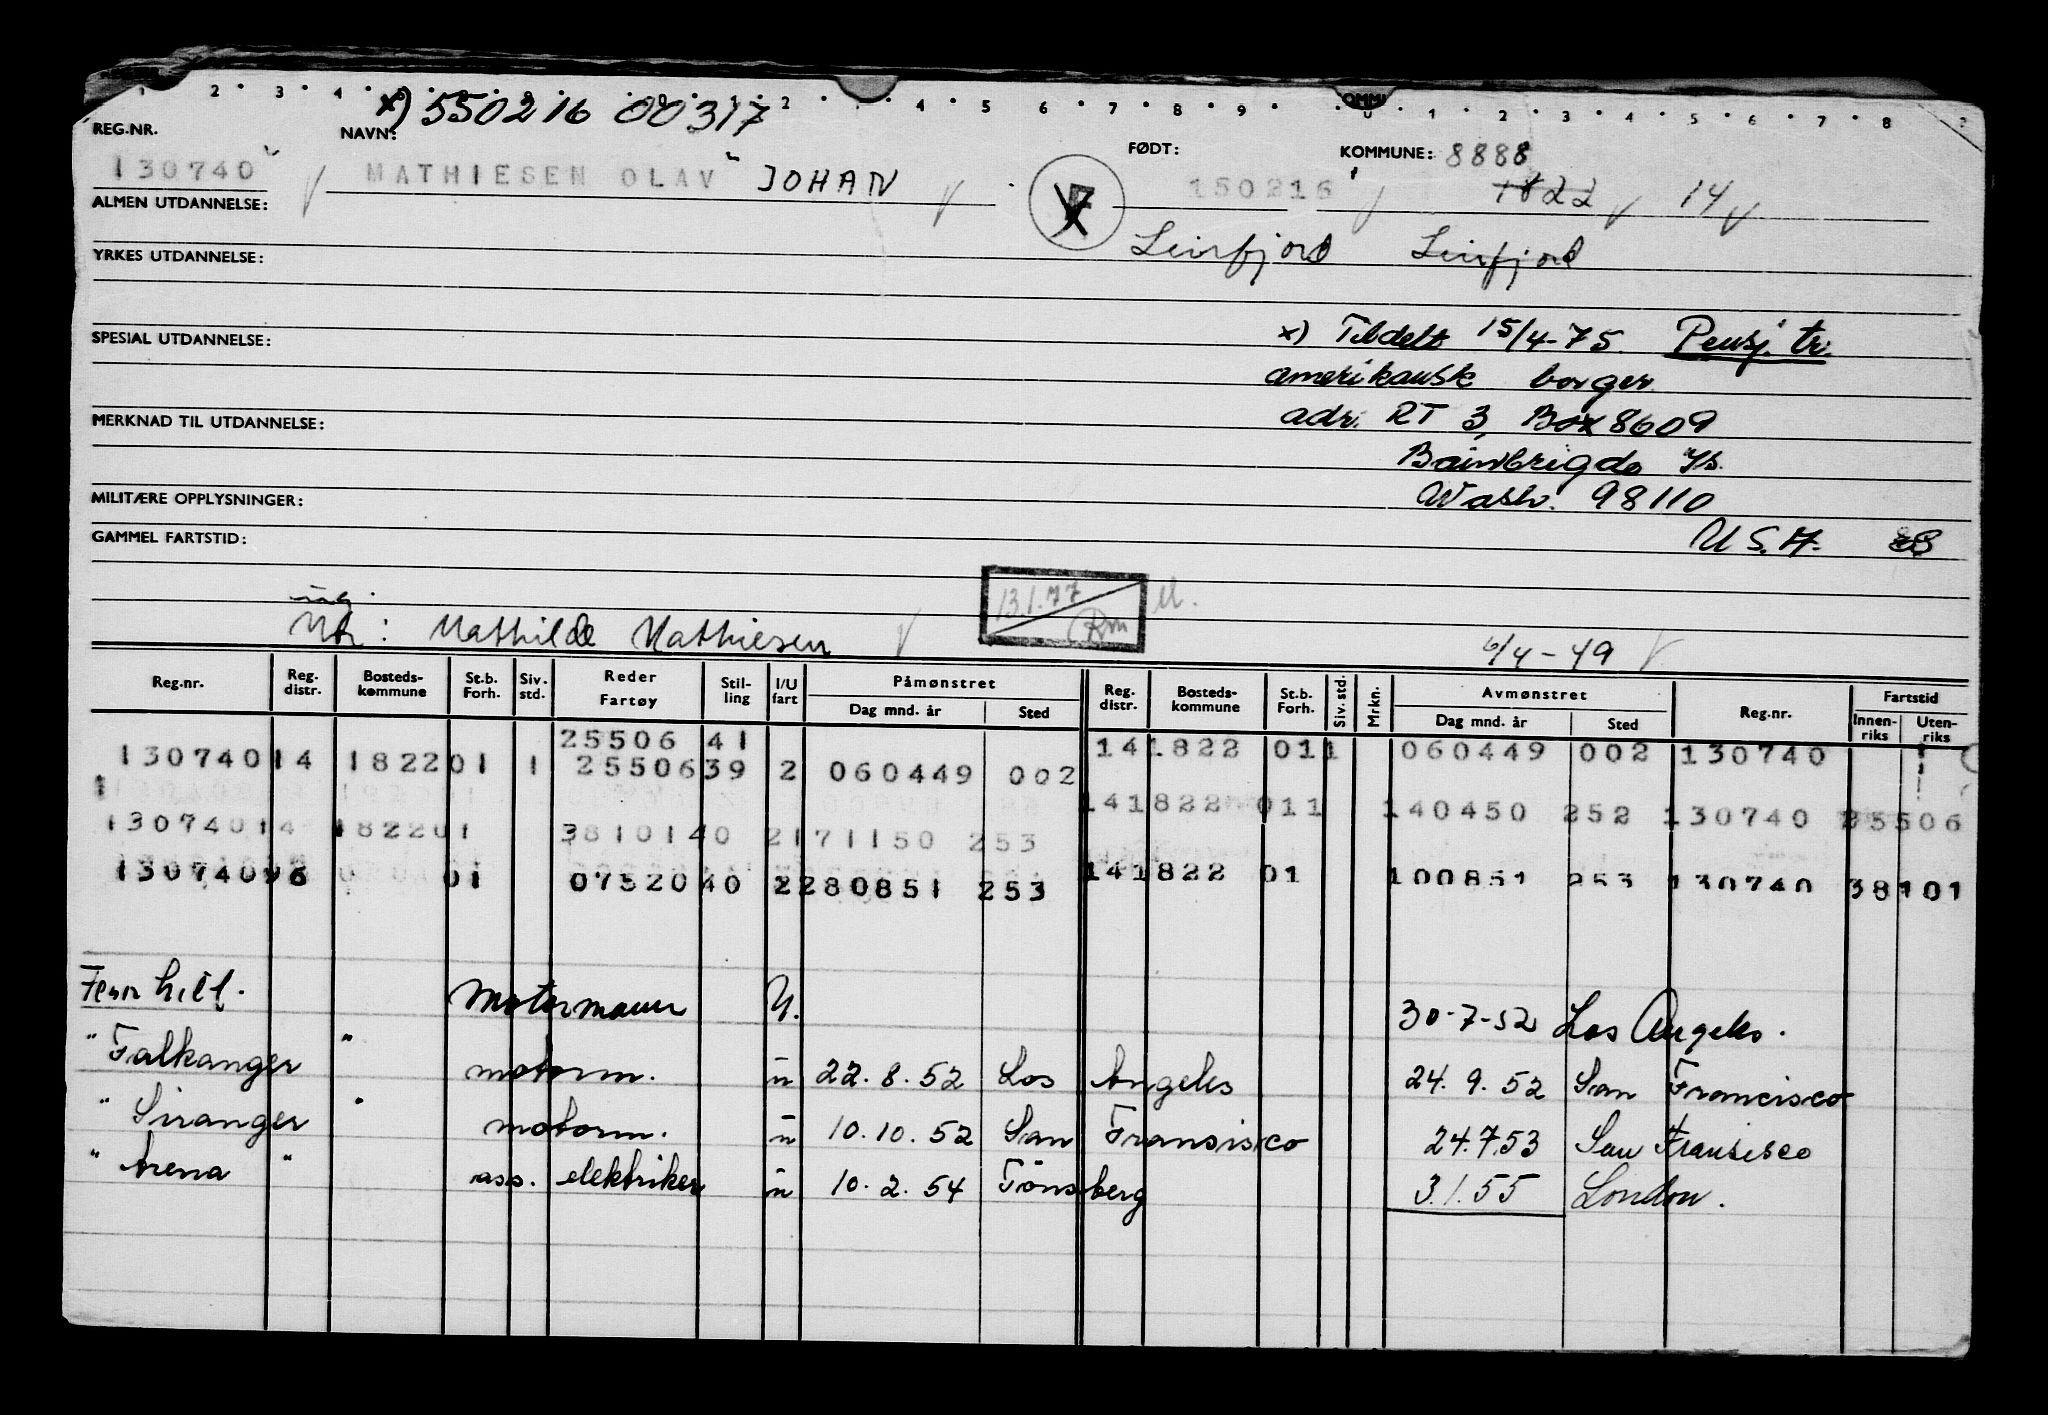 x) 550216 00317
REG.NR. NAVN: FØDT: KOMMUNE: 8888
130740 MATHIESEN OLAV JOHAN 150216 1822 14
ALMEN UTDANNELSE:
Leirfjord Leirfjord
YRKES UTDANNELSE:
SPESIAL UTDANNELSE: x) Tildelt 15/4-75. Pensj. tr.
amerikansk borger
MERKNAD TIL UTDANNELSE: adr. RT 3, Box 8609
Bainbrigde Is.
MILITÆRE OPPLYSNINGER: Wash. 98110
GAMMEL FARTSTID: U.S.A.
13.1.77 Rm
Mathilde Mathiesen 6/4-49
Reg.nr. Reg. distr. Bosteds-kommune St.b. Forh. Siv. std. Reder Fartøy Stil-ling I/U fart Påmønstret Dag mnd. år Sted Reg. distr. Bosteds-kommune St.b. Forh. Siv. std. Mrkn. Avmønstret Dag mnd. år Sted Reg.nr. Fartstid Innen-riks Uten-riks
25506 41 141822 011 060449 002 130740
130740 14 1822 01 1 25506 39 2 060449 002
141822 011 140450 252 130740 25506
130740 14 1822 01 38101 40 2 171150 253
141822 01 100851 253 130740 38101
130740 96 01 07520 40 2 280851 253
Fernhill. Motormann U. 30-7-52 Los Angeles.
" Falkanger " motorm. u 22.8.52 Los Angeles 24.9.52 San Francisco
" Siranger " motorm. u 10.10.52 San Fransisco 24.7.53 San Fransisco
" Arena " ass. elektriker u 10.2.54 Tönsberg 3.1.55 London.